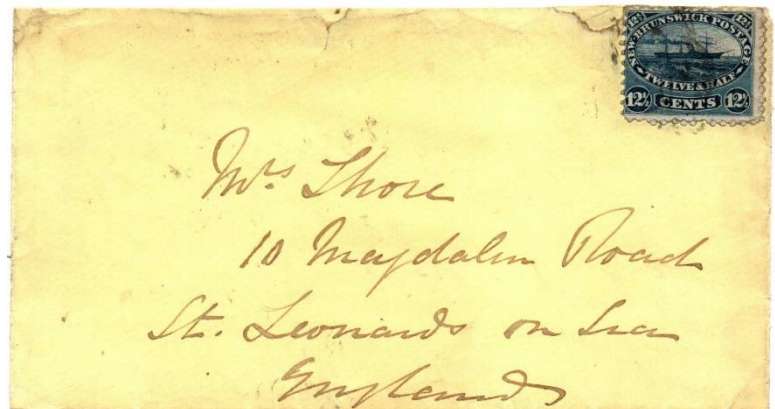 12½ NEW BRUNSWICK POSTAGE 12½
TWELVE & HALF
12½ CENTS 12½
Mrs Shore
10 Magdalen Road
St. Leonards on Sea
England